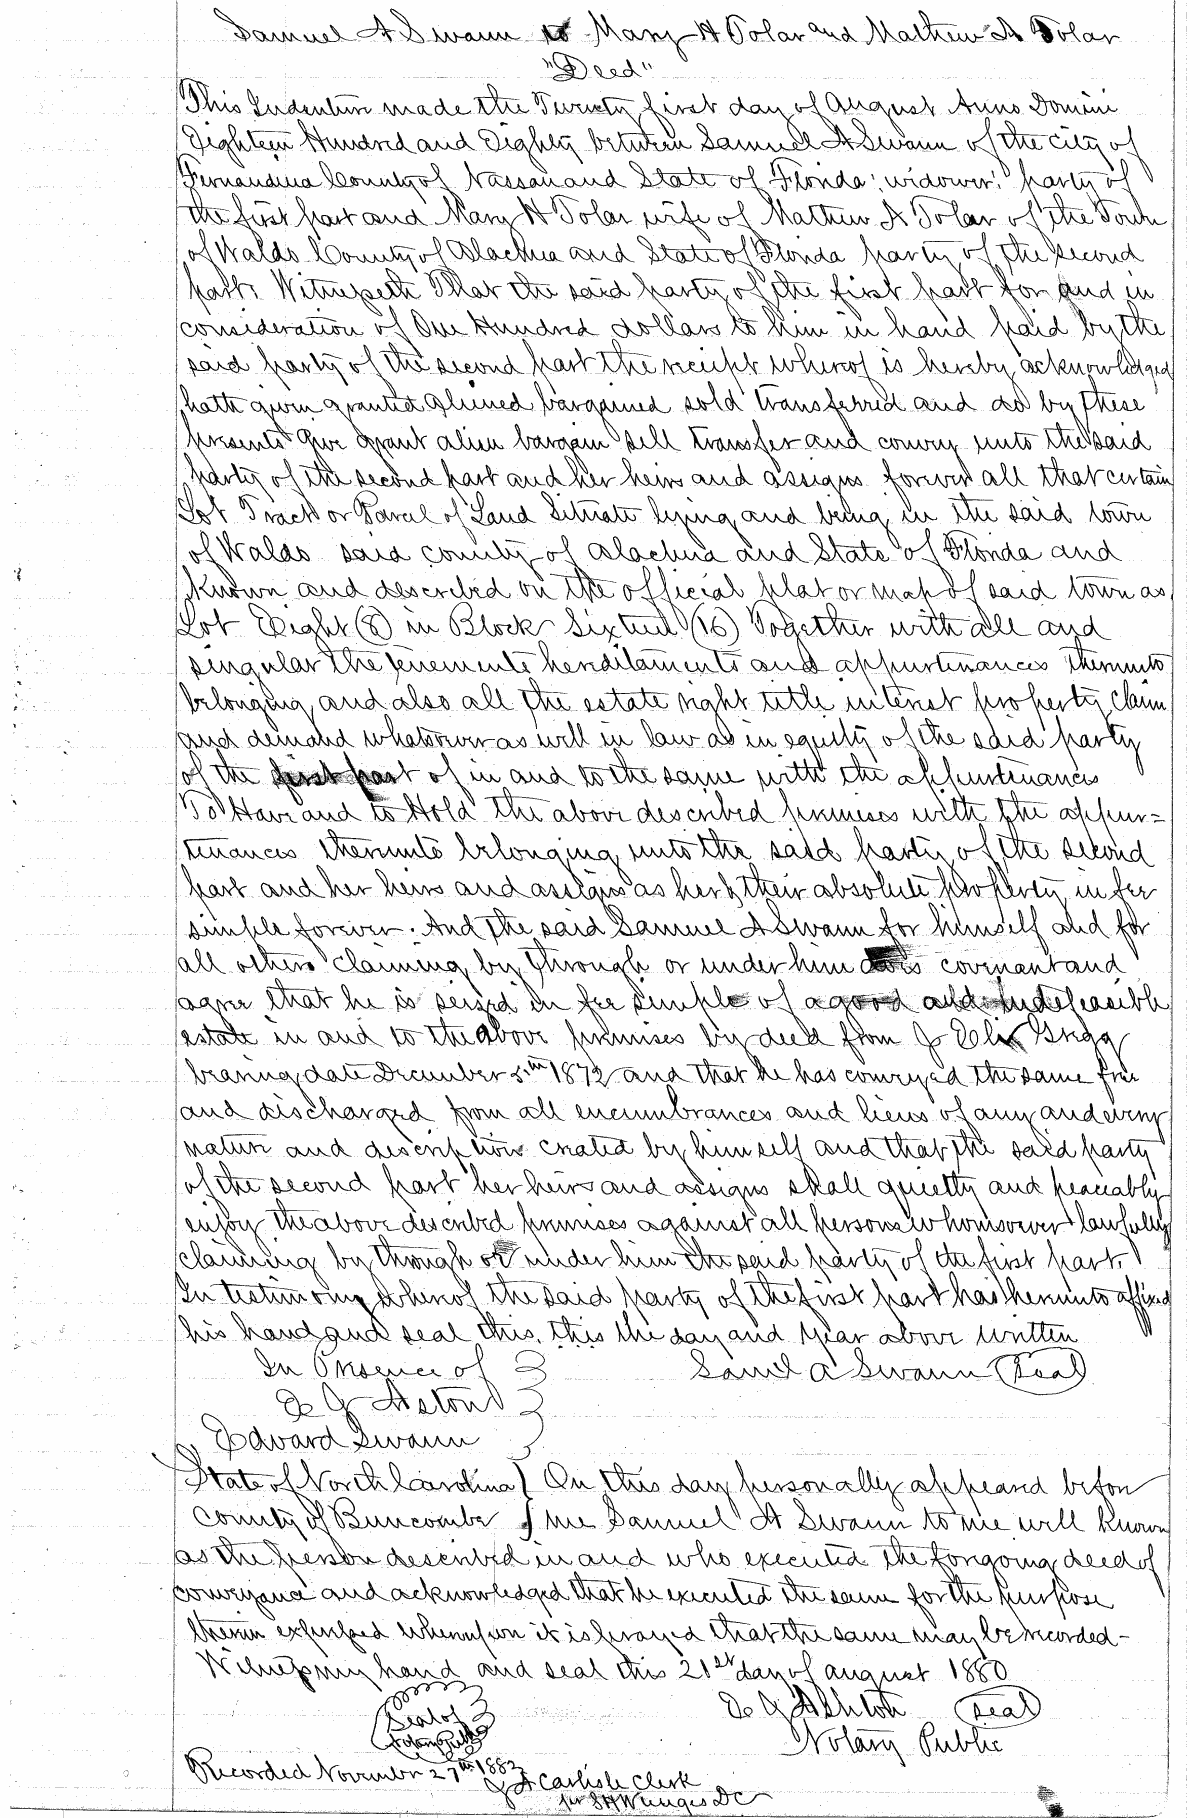 Samuel A Swann to Mary H Tolar and Mathew A Tolar
"Deed"
This Indenture made the Twenty first day of August Anno Domini
Eighteen Hundred and Eighty between Samuel A Swann of the city of
Fernandina County of Nassau and State of Florida "widower" party of
the first part and Mary H Tolar wife of Mathew A Tolar of the Town
of Waldo County of Alachua and State of Florida party of the second
part. Witnesseth That the said party of the first part for and in
consideration of One Hundred dollars to him in hand paid by the
said party of the second part the receipt whereof is hereby acknowledged
hath given granted aliened bargained sold transferred and do by these
presents give grant alien bargain sell transfer and convey unto the said
party of the second part and her heirs and assigns forever all that certain
Lot Tract or Parcel of Land Situate lying and being in the said town
of Waldo said county of Alachua and State of Florida and
known and described on the official plat or map of said town as
Lot Eight (8) in Block Sixteen (16) Together with all and
singular the tenements hereditaments and appurtenances thereunto
belonging and also all the estate right title interest property claim
and demand whatsoever as well in law as in equity of the said party
of the first part of in and to the same with the appurtenances
To Have and to Hold the above described premises with the appur=
tenances thereunto belonging unto the said party of the second
part and her heirs and assigns as her & their absolute property in fee
simple forever. And the said Samuel A Swann for himself and for
all others claiming by through or under him does covenant and
agree that he is seized in fee simple of a good and indefeasible
estate in and to the above premises by deed from J Gregg
bearing date December 5th 1872 and that he has conveyed the same free
and discharged from all encumbrances and liens of any and every
nature and description created by himself and that the said party
of the second part her heirs and assigns shall quietly and peaceably
enjoy the above described premises against all persons whomsoever lawfully
claiming by through or under him the said party of the first part.
In testimony whereof the said party of the first part has hereunto affixed
his hand and seal this, this the day and year above written
In Presence of Saml A Swann (Seal)
E J Aston
Edward Swann
State of North Carolina } On this day personally appeared before
County of Buncombe } me Samuel A Swann to me well known
as the person described in and who executed the foregoing deed of
conveyance and acknowledged that he executed the same for the purpose
therein expressed whereupon it is prayed that the same may be recorded -
Witness my hand and seal this 21st day of August 1880
E J Ashton (seal)
Seal of Notary Public
Notary Public
Recorded November 27th 1882
J A Carlisle Clerk
per S H Wienges DC